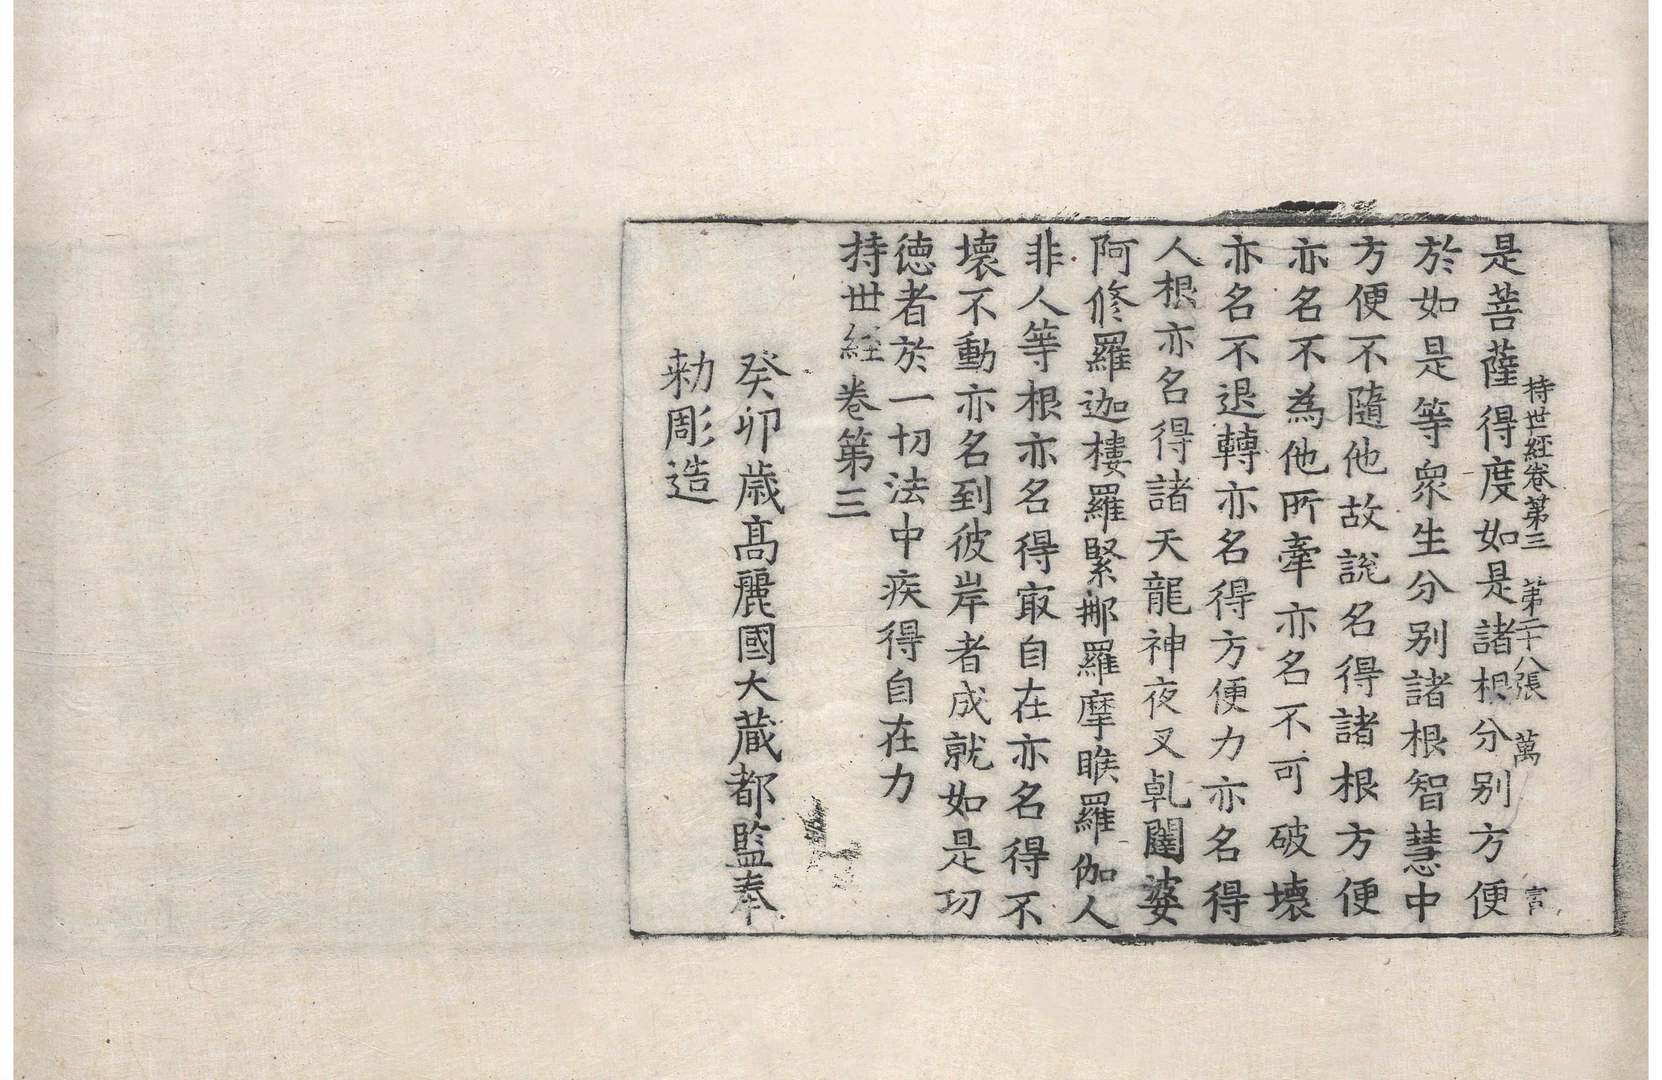 持世経卷第三 第二十八張 萬
是菩薩得度如是諸根分别方便
於如是等眾生分别諸根智慧中
方便不隨他故說名得諸根方便
亦名不為他所牽亦名不可破壞
亦名不退轉亦名得方便力亦名得
人根亦名得諸天龍神夜叉乹闥婆
阿修羅迦樓羅緊㭨羅摩睺羅伽人
非人等根亦名得㝡自在亦名得不
壞不動亦名到彼岸者成就如是功
德者於一切法中疾得自在力
持世経卷第三
癸卯歳髙麗國大藏都監奉
勑彫造